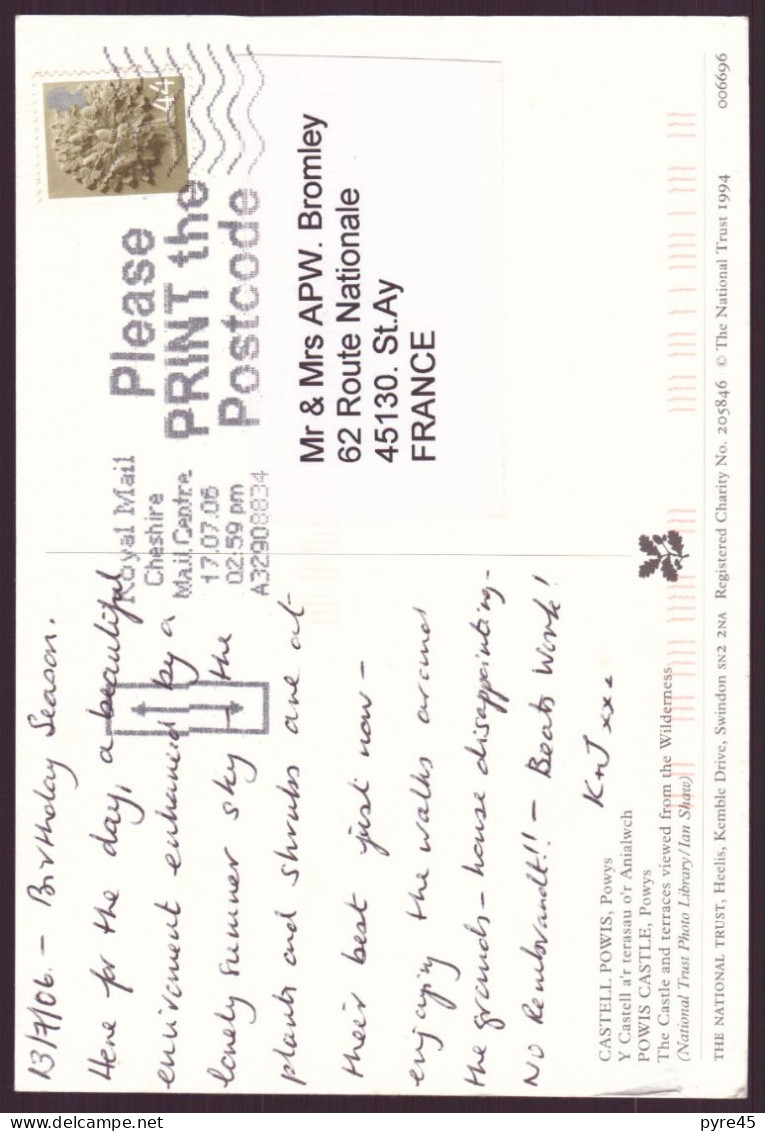 13/7/06. – Birthday Season.
Here for the day, a beautiful
environment enhanced by a
lovely summer sky – the
plants and shrubs are at
their best just now –
enjoying the walks around
the grounds – house disappointing –
NO Rembrandt!! – Beats Work!
K n J xxx
CASTELL POWIS, Powys
Y Castell a'r terasau o'r Anialwch
POWIS CASTLE, Powys
The Castle and terraces viewed from the Wilderness
(National Trust Photo Library/Ian Shaw)
THE NATIONAL TRUST, Heelis, Kemble Drive, Swindon SN2 2NA Registered Charity No. 205846 © The National Trust 1994 006696
Royal Mail
Cheshire
Mail Centre
17.07.06
02:59 pm
A32908834
Please
PRINT the
Postcode
44
Mr & Mrs APW. Bromley
62 Route Nationale
45130. St.Ay
FRANCE
pyre45